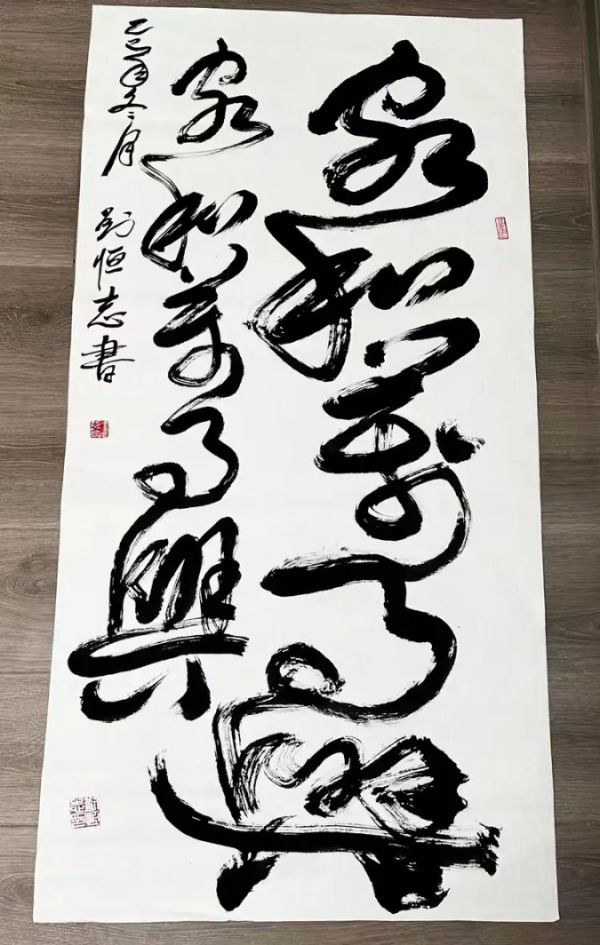 家和萬事興
家和萬事興
乙巳年冬二月 劉恒志書